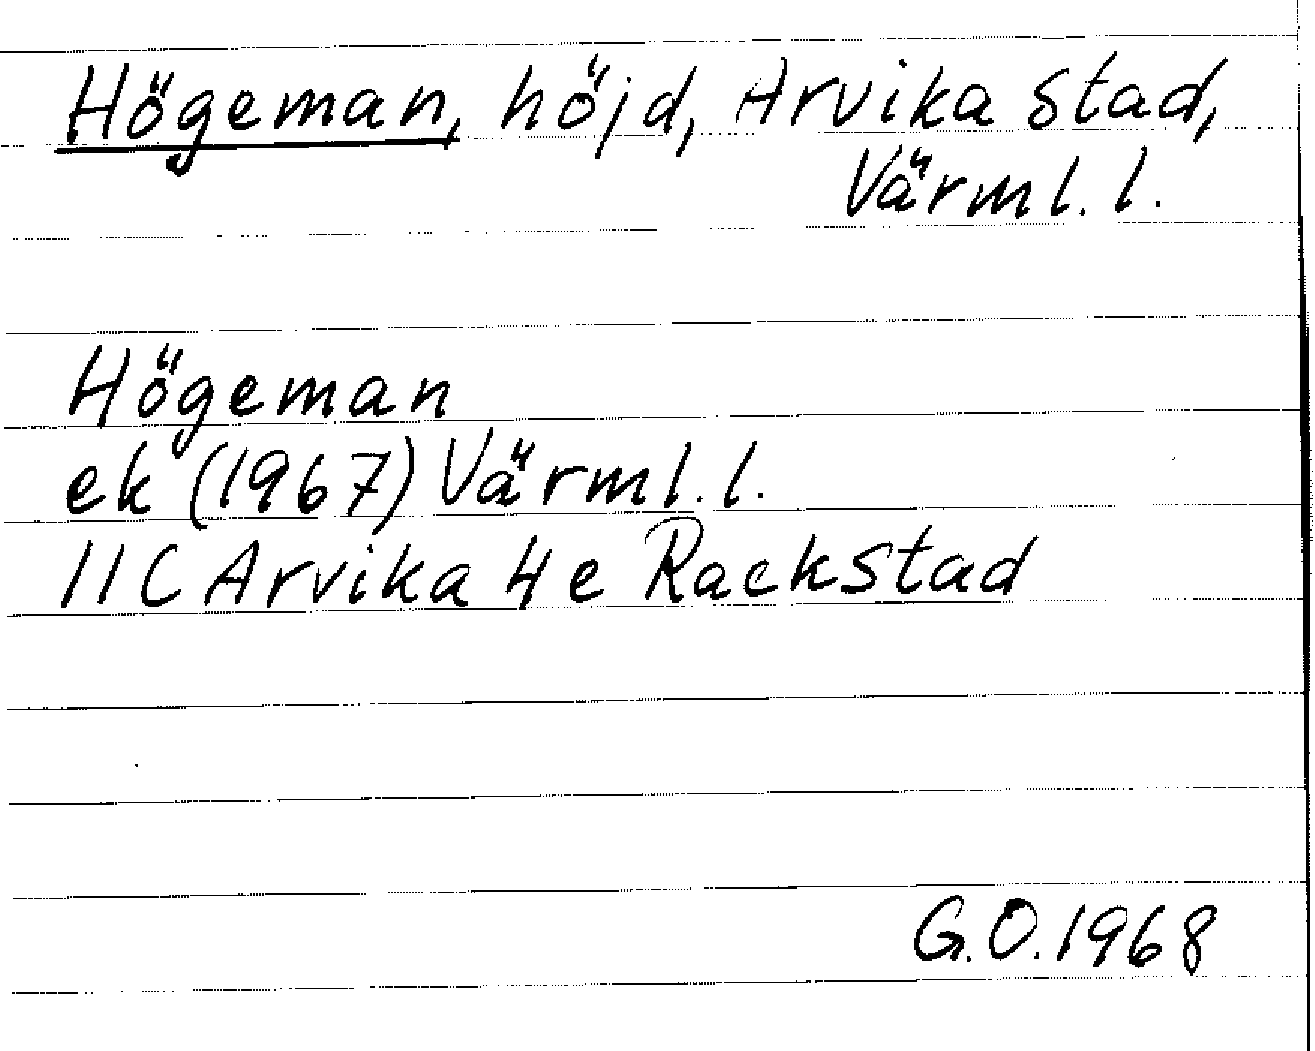 Högeman, höjd, Arvika stad,
Värml. l.
Högeman
ek (1967) Värml. l.
11C Arvika 4e Rackstad
G.O. 1968